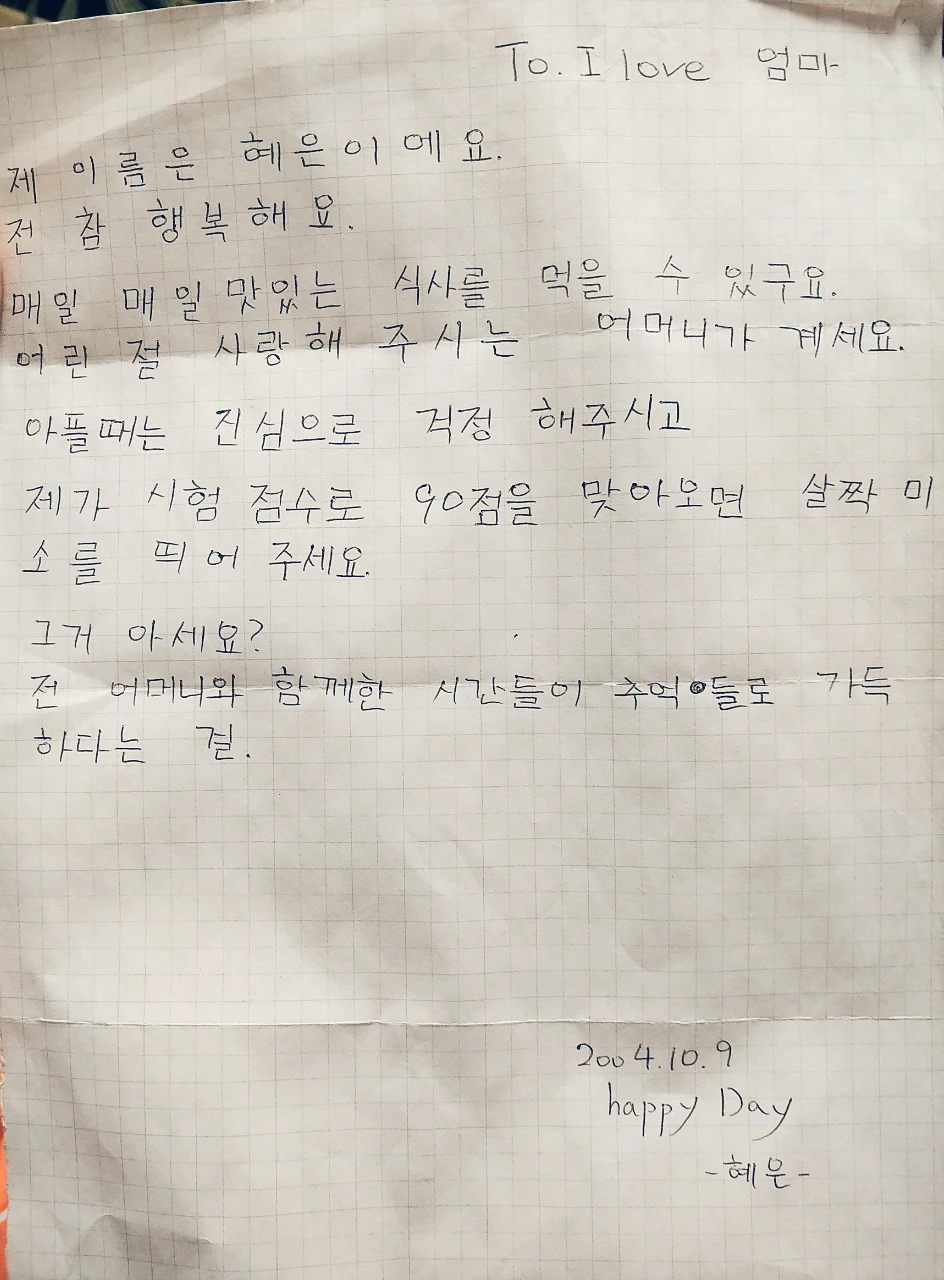 To. I love 엄마
제 이름은 혜은이에요.
전 참 행복해요.
매일 매일 맛있는 식사를 먹을 수 있구요.
어린 절 사랑해 주시는 어머니가 계세요.
아플때는 진심으로 걱정 해주시고
제가 시험 점수로 90점을 맞아오면 살짝 미
소를 띄어 주세요.
그거 아세요?
전 어머니와 함께한 시간들이 추억들로 가득
하다는 걸.
2004.10.9
happy Day
-혜은-